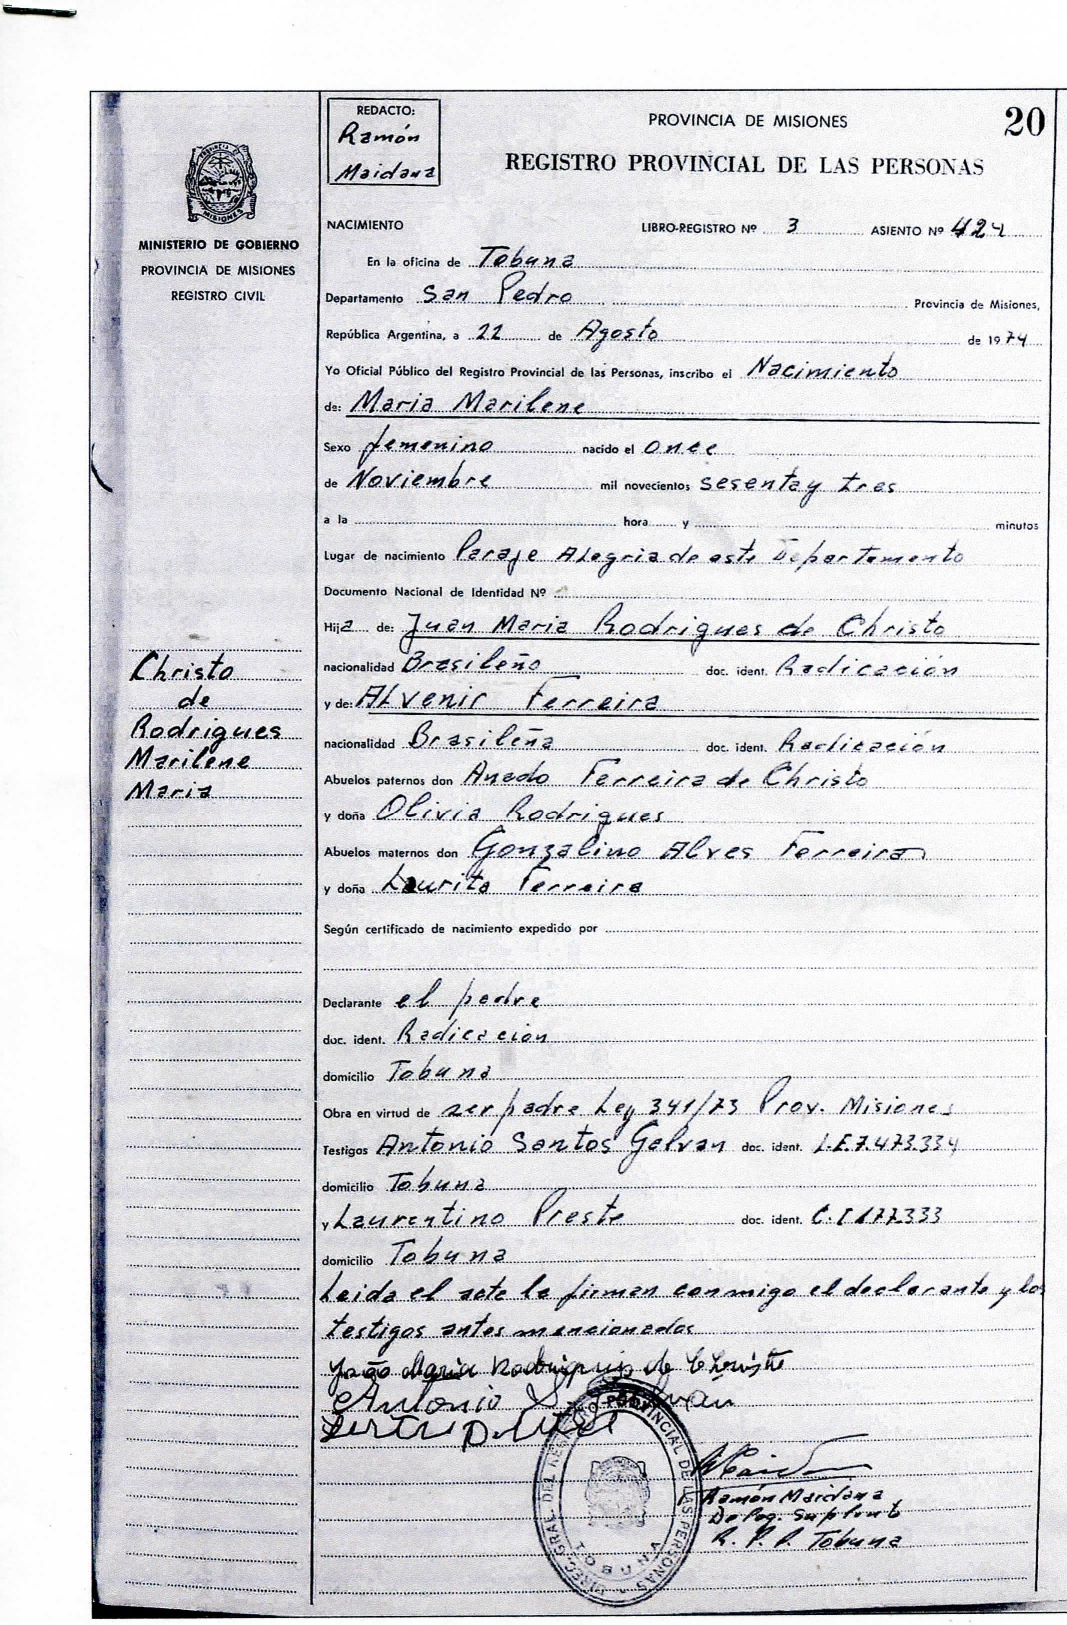 REDACTO:
Ramón
Maidana
PROVINCIA DE MISIONES
20
REGISTRO PROVINCIAL DE LAS PERSONAS
MINISTERIO DE GOBIERNO
PROVINCIA DE MISIONES
REGISTRO CIVIL
NACIMIENTO LIBRO-REGISTRO Nº 3 ASIENTO Nº 424
En la oficina de Tobuna
Departamento San Pedro Provincia de Misiones,
República Argentina, a 22 de Agosto de 1974
Yo Oficial Público del Registro Provincial de las Personas, inscribo el Nacimiento
de: Maria Marilene
Sexo femenino nacido el once
de Noviembre mil novecientos sesenta y tres
a la hora y minutos
Lugar de nacimiento Paraje Alegria de este Departamento
Documento Nacional de Identidad Nº
Hija de: Juan Maria Rodrigues de Christo
nacionalidad Brasileño doc. ident. Radicación
y de: Alvenir Ferreira
nacionalidad Brasileña doc. ident. Radicación
Abuelos paternos don Anedo Ferreira de Christo
y doña Olivia Rodrigues
Abuelos maternos don Gonzalino Alves Ferreira
y doña Laurita Ferreira
Según certificado de nacimiento expedido por
Declarante el padre
doc. ident. Radicación
domicilio Tobuna
Obra en virtud de ser padre Ley 341/73 Prov. Misiones
Testigos Antonio Santos Galvan doc. ident. L.E.7.473.334
domicilio Tobuna
y Laurentino Preste doc. ident. C.I 177.333
domicilio Tobuna
Leida el acta la firman conmigo el declarante y los
testigos antes mencionados
João Maria Rodrigues de Christo
Antonio S. Galvan
Christo
de
Rodrigues
Marilene
Maria
DIREC. GRAL. DEL REGISTRO PROVINCIAL DE LAS PERSONAS
TOBUNA
Ramón Maidana
Deleg. Suplente
R. P. P. Tobuna